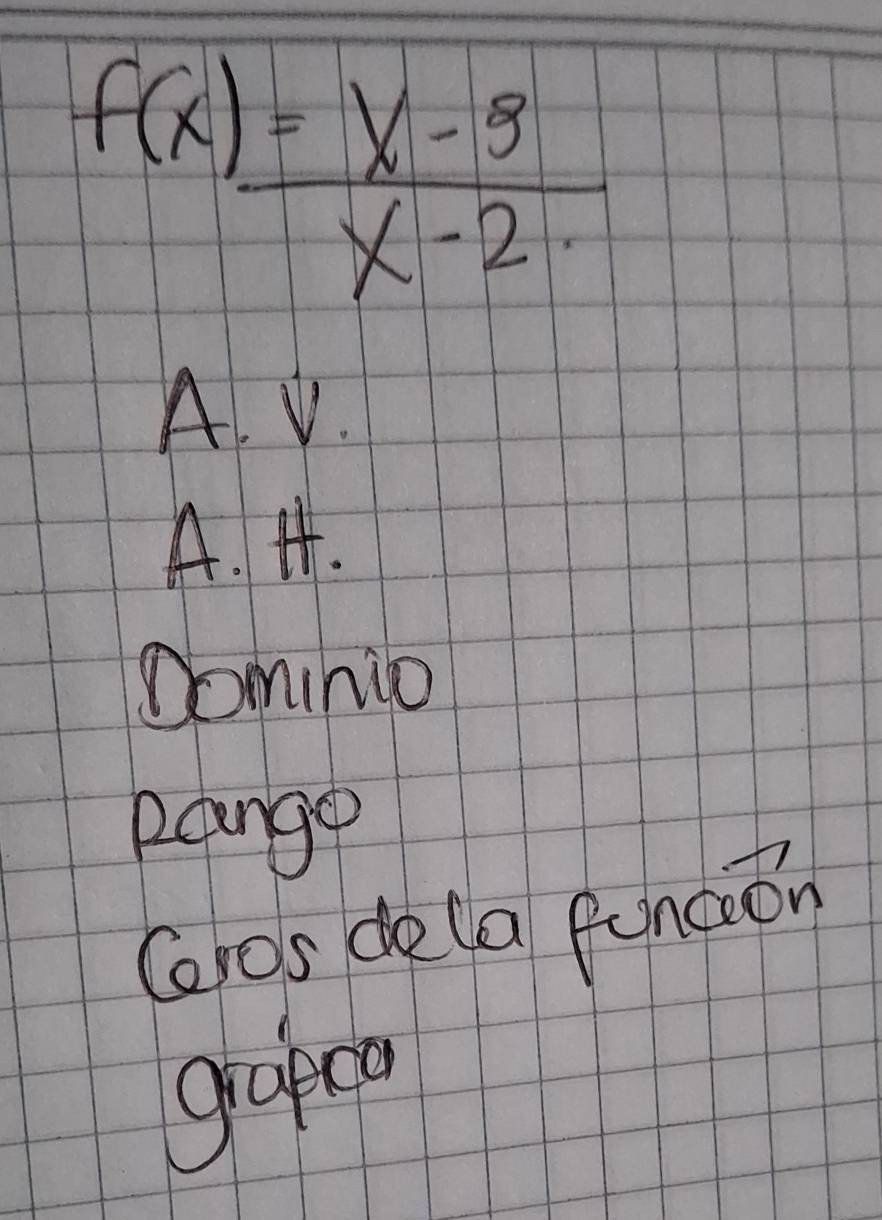 f(x) = x - 9
x - 2.
A. V.
A. H.
Dominio
Rango
Ceros de la función
gráfica